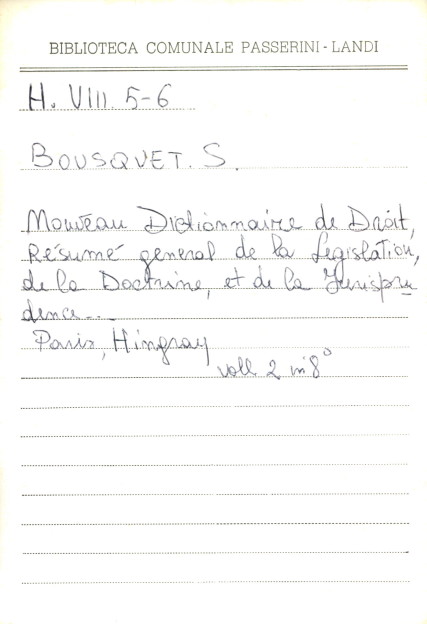 BIBLIOTECA COMUNALE PASSERINI - LANDI
H. VIII. 5-6
BOUSQUET. S.
Nouveau Dictionnaire de Droit,
Résumé general de la Legislation,
de la Doctrine, et de la Jurispru
dence...
Paris, Hingray
voll 2 in 8°